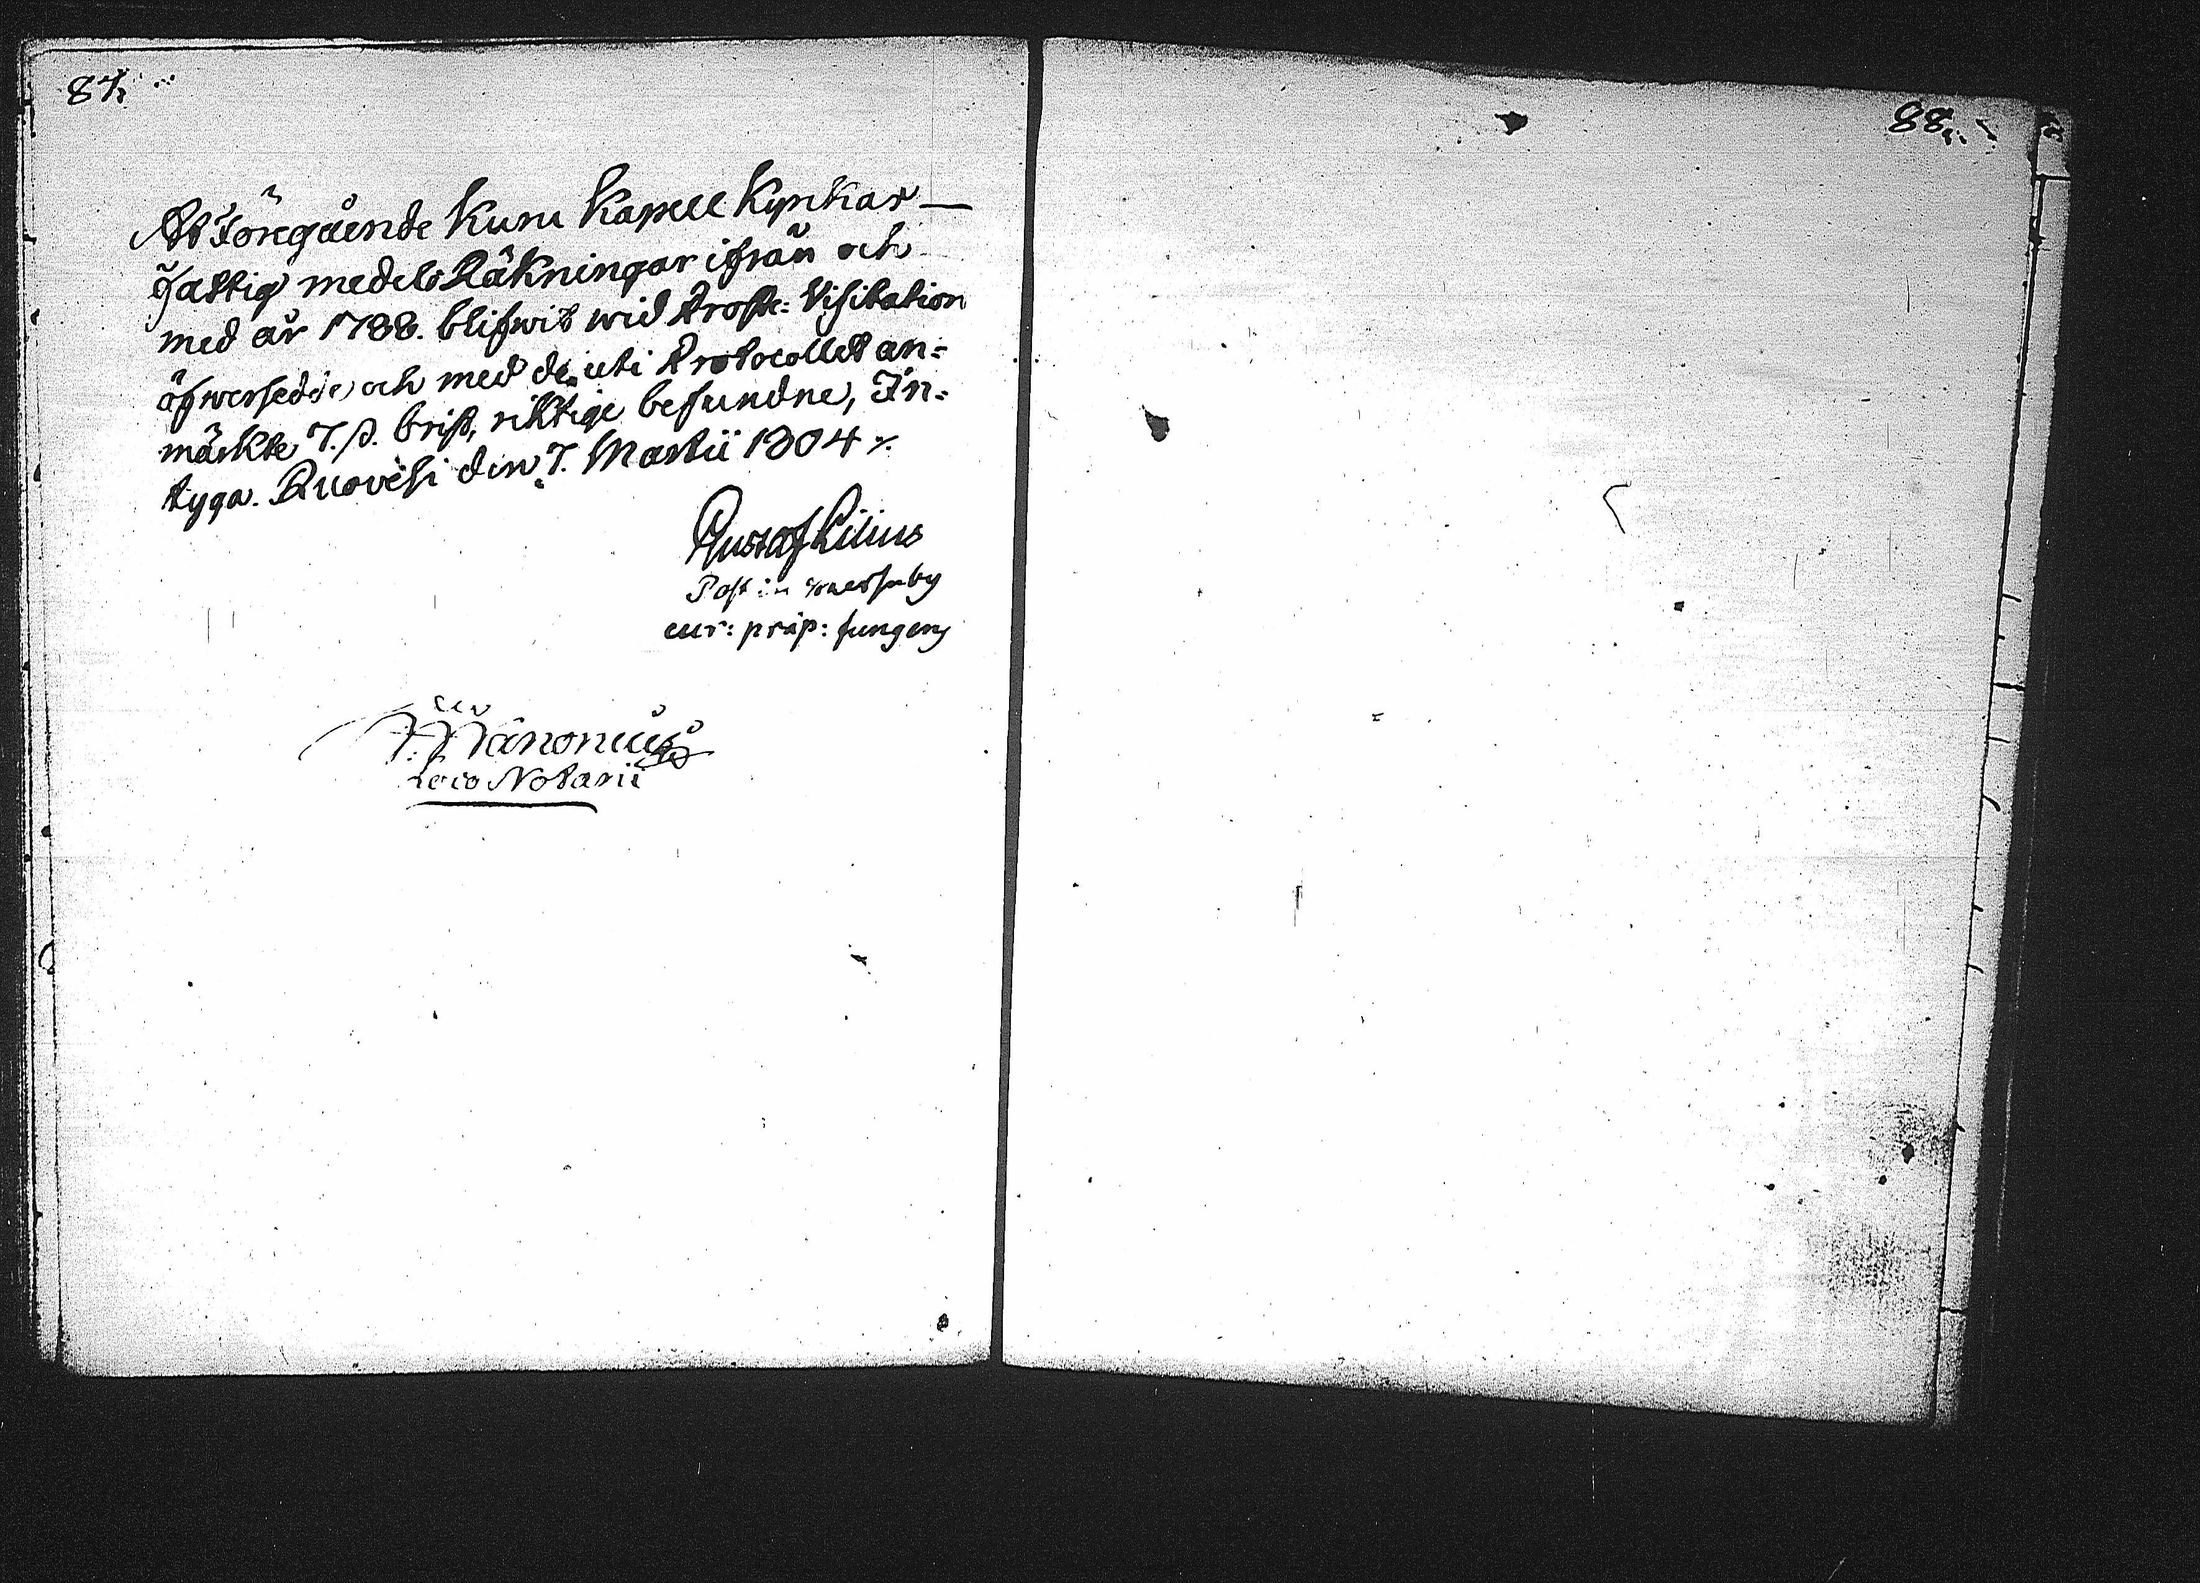 87.
At Föregående Kuru Kapell Kyrkas
fattig medels Räkningar ifrån och
med år 1788. blifwit wid Prosts: Visitation
öfwersedde och med de uti Protocollet an=
märkte 7. s. brist, riktige befundne, In=
tyga. Ruovesi den 7. Martii 1804 ⁒
Gustaf Lilius
Past in
cur: præp: fungens
Wänonius
Loco Notarii
88.